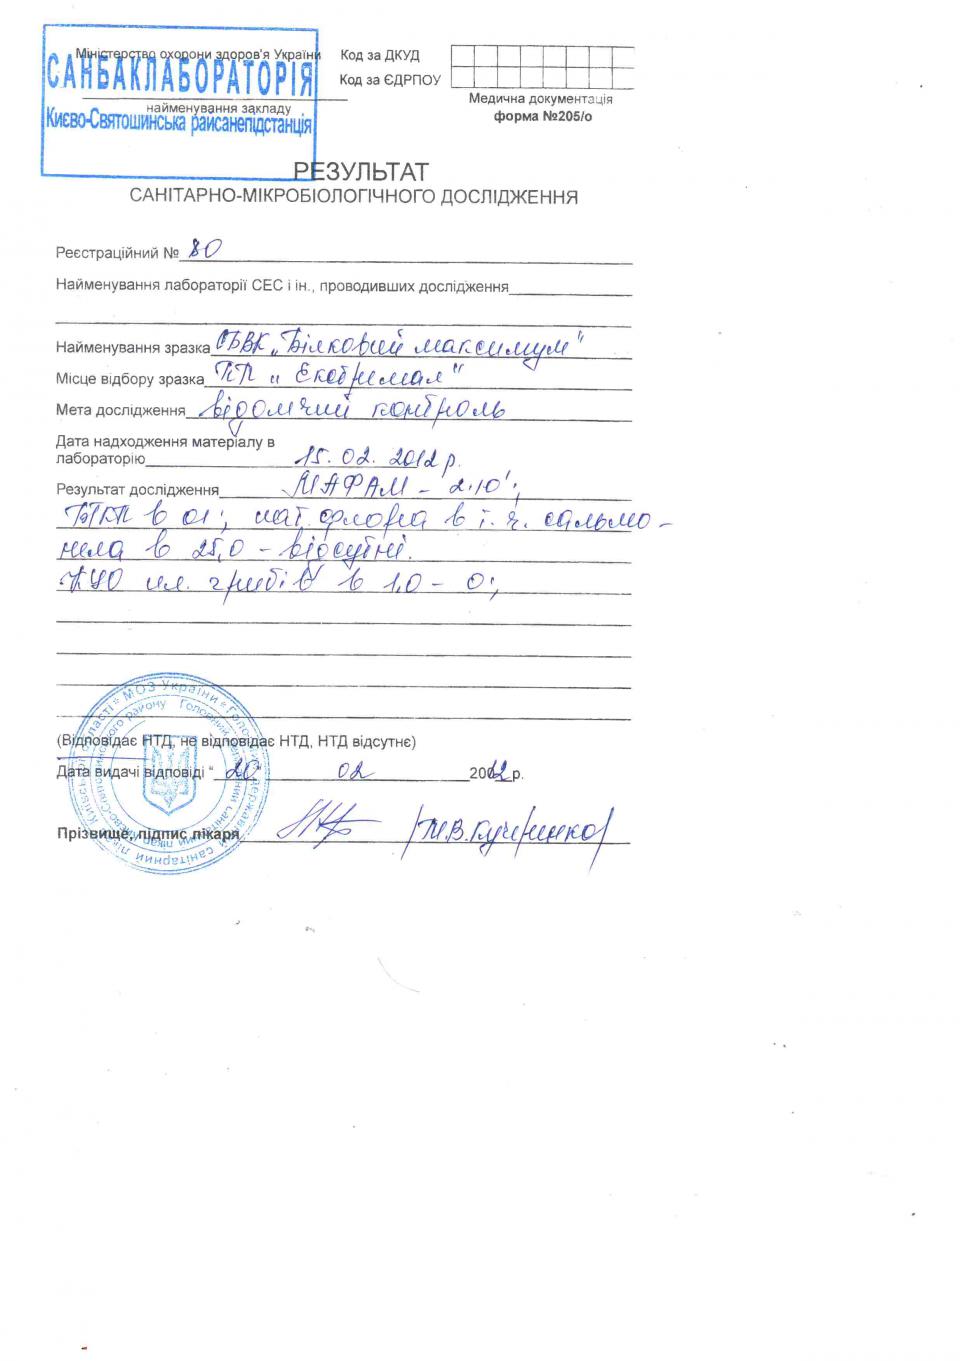 Міністерство охорони здоров'я України
САНБАКЛАБОРАТОРІЯ
найменування закладу
Києво-Святошинська райсанепідстанція
Код за ДКУД
Код за ЄДРПОУ
Медична документація
форма №205/о
РЕЗУЛЬТАТ
САНІТАРНО-МІКРОБІОЛОГІЧНОГО ДОСЛІДЖЕННЯ
Реєстраційний № 80
Найменування лабораторії СЕС і ін., проводивших дослідження
Найменування зразка СБВК „Білковий максимум"
Місце відбору зразка ПП „
Мета дослідження відомчий контроль
Дата надходження матеріалу в
лабораторію 15.02.2012р.
Результат дослідження МАФАМ - 2·10¹;
БГКП в 0,1; пат. флора в т.ч. сальмо-
нела в 25,0 - відсутні.
КУО пл. грибів в 1,0 - 0;
(Відповідає НТД, не відповідає НТД, НТД відсутнє)
Дата видачі відповіді “20” 02 2012р.
Прізвище, підпис лікаря